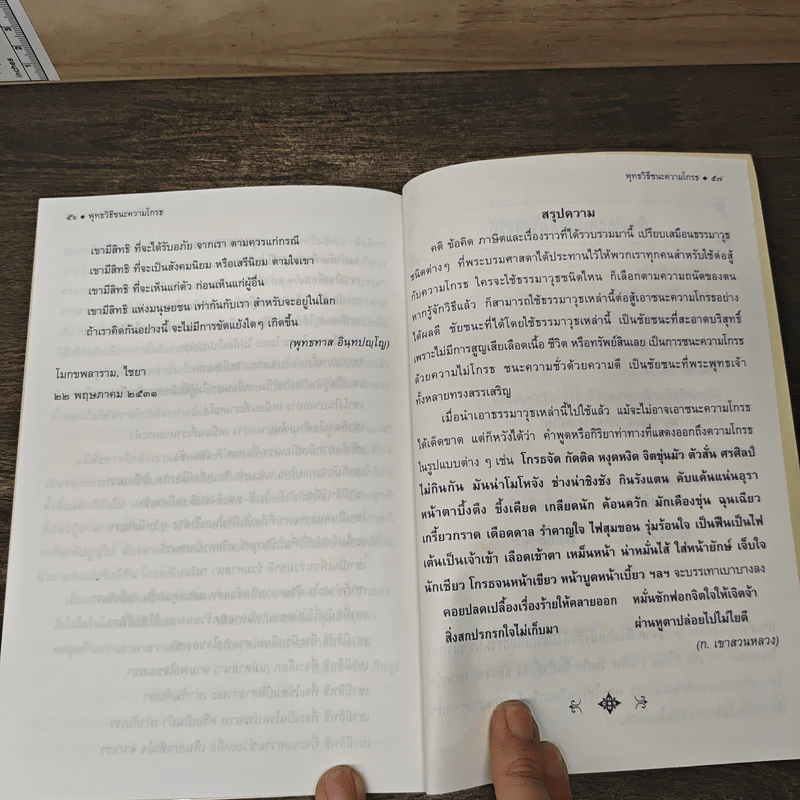 ๕๖ ◆ พุทธวิธีชนะความโกรธ
เขามีสิทธิ ที่จะได้รับอภัย จากเรา ตามควรแก่กรณี
เขามีสิทธิ ที่จะเป็นสังคมนิยม หรือเสรีนิยม ตามใจเขา
เขามีสิทธิ ที่จะเห็นแก่ตัว ก่อนเห็นแก่ผู้อื่น
เขามีสิทธิ แห่งมนุษยชน เท่ากันกับเรา สำหรับจะอยู่ในโลก
ถ้าเราคิดกันอย่างนี้ จะไม่มีการขัดแย้งใดๆ เกิดขึ้น
(พุทธทาส อินฺทปญฺโญ)
โมกขพลาราม, ไชยา
๒๒ พฤษภาคม ๒๕๓๑
พุทธวิธีชนะความโกรธ ◆ ๕๗
สรุปความ
คติ ข้อคิด ภาษิตและเรื่องราวที่ได้รวบรวมมานี้ เปรียบเสมือนธรรมาวุธ
ชนิดต่างๆ ที่พระบรมศาสดาได้ประทานไว้ให้พวกเราทุกคนสำหรับใช้ต่อสู้
กับความโกรธ ใครจะใช้ธรรมาวุธชนิดไหน ก็เลือกตามความถนัดของตน
หากรู้จักวิธีแล้ว ก็สามารถใช้ธรรมาวุธเหล่านี้ต่อสู้เอาชนะความโกรธอย่าง
ได้ผลดี ชัยชนะที่ได้โดยใช้ธรรมาวุธเหล่านี้ เป็นชัยชนะที่สะอาดบริสุทธิ์
เพราะไม่มีการสูญเสียเลือดเนื้อ ชีวิต หรือทรัพย์สินเลย เป็นการชนะความโกรธ
ด้วยความไม่โกรธ ชนะความชั่วด้วยความดี เป็นชัยชนะที่พระพุทธเจ้า
ทั้งหลายทรงสรรเสริญ
เมื่อนำเอาธรรมาวุธเหล่านี้ไปใช้แล้ว แม้จะไม่อาจเอาชนะความโกรธ
ได้เด็ดขาด แต่ก็หวังได้ว่า คำพูดหรือกิริยาท่าทางที่แสดงออกถึงความโกรธ
ในรูปแบบต่าง ๆ เช่น โกรธจัด กัดติด หงุดหงิด จิตขุ่นมัว ตัวสั่น ศรศิลป์
ไม่กินกัน มันน่าโมโหจัง ช่างน่าชิงชัง กินรังแตน คับแค้นแน่นอุรา
หน้าตาบึ้งตึง ขึ้งเคียด เกลียดนัก ค้อนควัก มักเคืองขุ่น ฉุนเฉียว
เกรี้ยวกราด เดือดดาล รำคาญใจ ไฟสุมขอน รุ่มร้อนใจ เป็นฟืนเป็นไฟ
เต้นเป็นเจ้าเข้า เลือดเข้าตา เหม็นหน้า น่าหมั่นไส้ ใส่หน้ายักษ์ เจ็บใจ
นักเชียว โกรธจนหน้าเขียว หน้าบูดหน้าเบี้ยว ฯลฯ จะบรรเทาเบาบางลง
คอยปลดเปลื้องเรื่องร้ายให้คลายออก หมั่นซักฟอกจิตใจให้เจิดจ้า
สิ่งสกปรกรกใจไม่เก็บมา ผ่านหูตาปล่อยไปไม่ไยดี
(ก. เขาสวนหลวง)